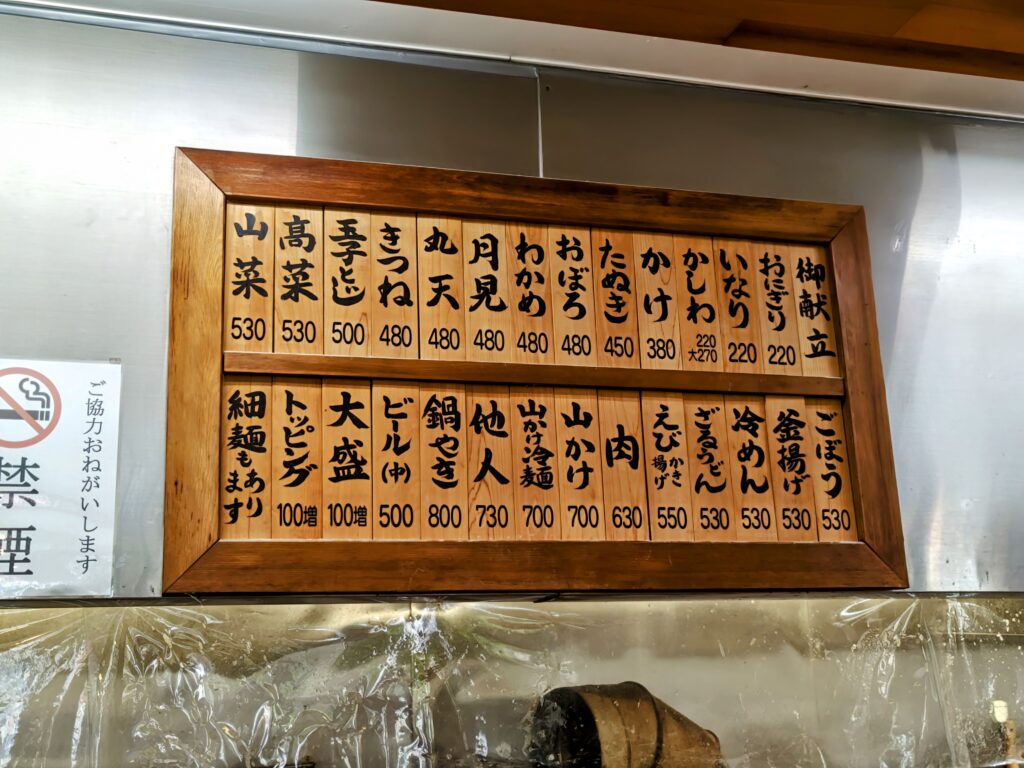 御献立
おにぎり 220
いなり 220
かしわ 220 大270
かけ 380
たぬき 450
おぼろ 480
わかめ 480
月見 480
丸天 480
きつね 480
玉子とじ 500
高菜 530
山菜 530
ごぼう 530
釜揚げ 530
冷めん 530
ざるうどん 530
えび かき揚げ 550
肉 630
山かけ 700
山かけ冷麺 700
他人 730
鍋やき 800
ビール(中) 500
大盛 100増
トッピング 100増
細麺もあります
ご協力おねがいします
禁煙